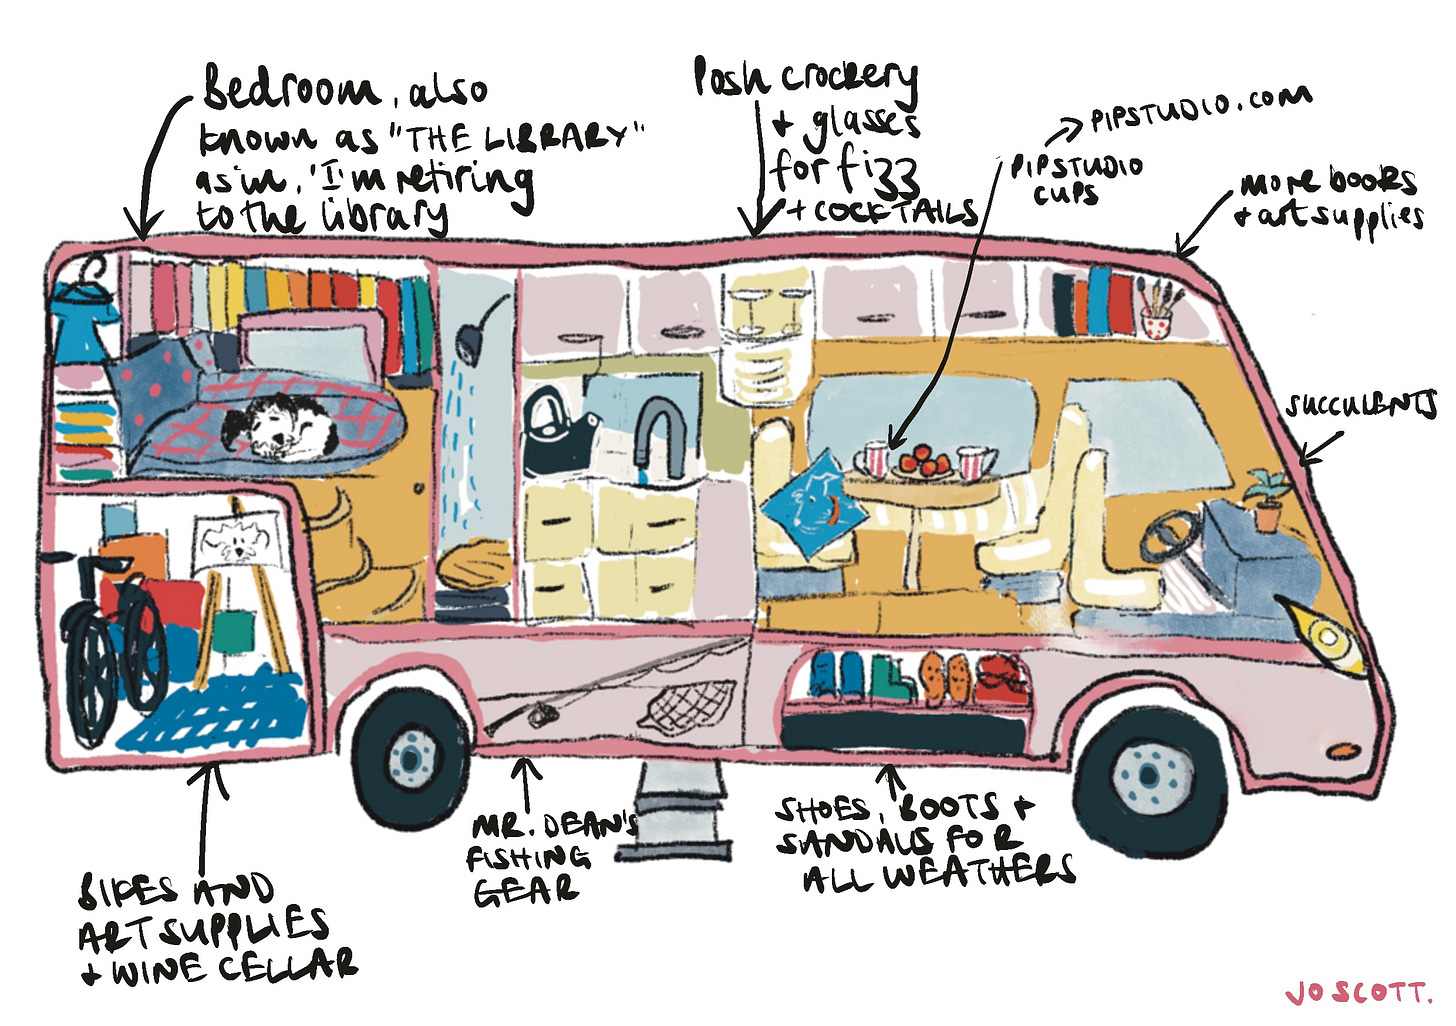 Bedroom, also
known as "THE LIBRARY"
as in, 'I'm retiring
to the library
Posh crockery
+ glasses
for fizz
+ COCKTAILS
PIPSTUDIO.COM
PIPSTUDIO
CUPS
more books
+ art supplies
SUCCULENTS
BIKES AND
ART SUPPLIES
+ WINE CELLAR
MR. DEAN'S
FISHING
GEAR
SHOES, BOOTS +
SANDALS FOR
ALL WEATHERS
JO SCOTT.